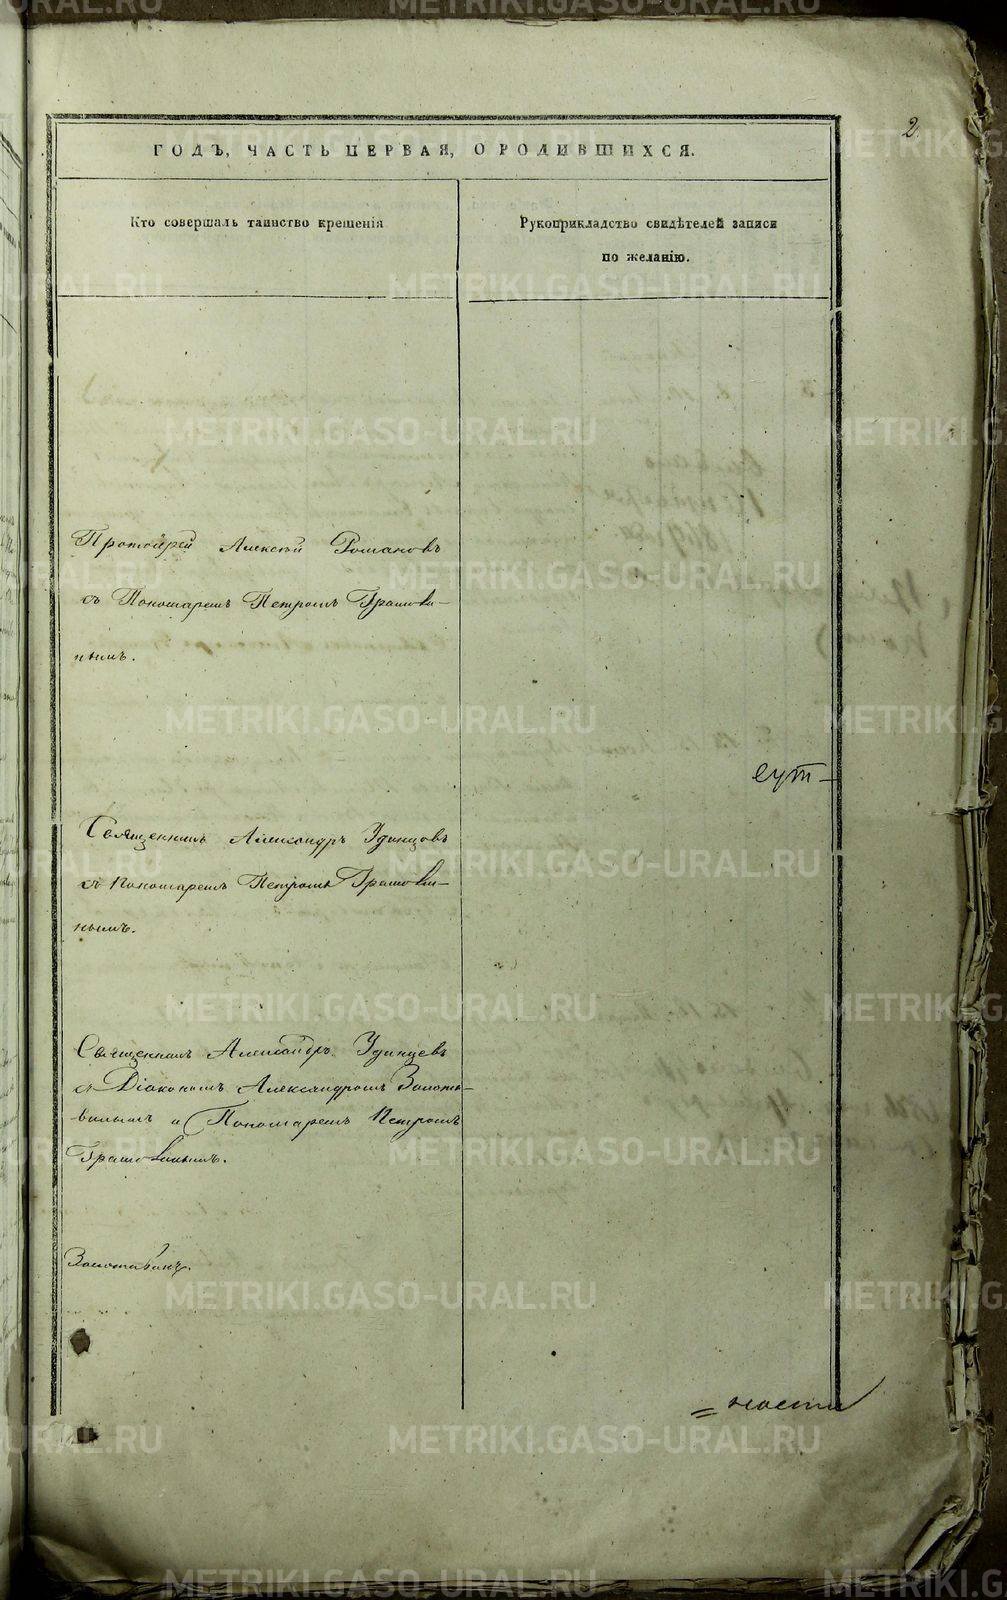 2.
ГОДЪ, ЧАСТЬ ПЕРВАЯ, О РОДИВШИХСЯ.
Кто совершалъ таинство крещенія
Рукоприкладство свидѣтелей записи
по желанію.
Протоіерей Алексѣй Романовъ
съ Пономаремъ Петромъ Грамови-
нымъ.
сут-
Священникъ Александръ Удинцовъ
съ Пономаремъ Петромъ Грамови-
нымъ.
Священникъ Александръ Удинцевъ
съ Діакономъ Александромъ Золота-
винымъ и Пономаремъ Петромъ
Грамовинымъ.
Золотавинъ.
=ности
METRIKI.GASO-URAL.RU